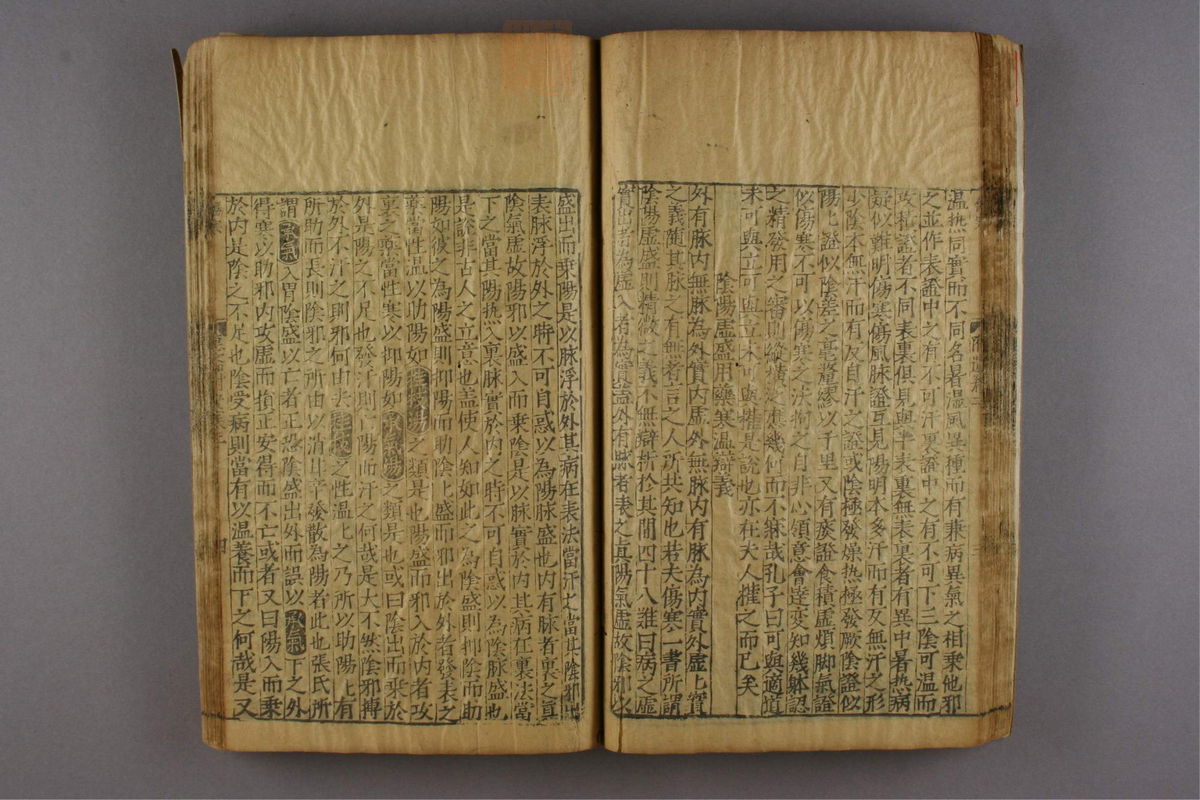 温热同實而不同名暑濕風異種而有兼病異氣之相乘他邪
之並作表證中之有不可汗裏證中之有不可下三陰可温而
證者不同表裏俱見與半表裏無表裏者有異中暑热病
疑似難明傷寒傷風脉證互見陽明本多汗而有反無汗之形
少陰本無汗而有反自汗之證或陰極發燥热極發厥陰證似
陽陽證似陰差之毫釐繆以千里又有痰證食積虚煩脚氣證
似傷寒不可以傷寒之法拘之自非心領意會達變知幾躰認
之精發用之審則縱横之應幾何而不窮哉孔子曰可與適道
未可與立可與立未可與權是說也亦在夫人權之而已矣
陰陽虚盛用藥寒温辯義
外有脉内無脉為外實内虚外無脉内有脉為内實外虚虚實
之義随其脉之有無者言之人所共知也若夫傷寒一書所謂
陰陽虚盛則精微之義不無辯折於其間四十八難曰病之虚
實出者為虚入者為實葢外有脉者表之真陽氣虚故陰邪以
盛出而乘陽是以脉浮於外其病在表法當汗之當其陰邪出
表脉浮於外之時不可自惑以為陽脉盛也内有脉者裏之真
陰氣虚故陽邪以盛入而乘陰是以脉實於内其病在裏法當
下之當其陽热入裏脉實於内之時不可自惑以為陰脉盛也
是說非古人之立意也盖使人知如此之為陰盛則抑陰而助
陽如彼之為陽盛則抑陽而助陰也盛而邪出於外者發表之
藥當性温以助陽如桂枝湯之類是也陽盛而邪入於内者攻
裏之藥當性寒以抑陽如承氣湯之類是也或曰陰出而乘於
外是陽之不足也發汗則陽而汗之何哉是大不然陰邪搏
於外不汗之則邪何由去桂枝之性温也之乃所以助陽陽有
所助而長則陰邪之所由以消耳辛發散為陽者此也張氏所
謂承氣入胃陰盛以亡者正恐陰盛出外而誤以承氣下之外
得寒以助邪内攻虚而損正安得而不亡或者又曰陽入而乘
於内是陰之不足也陰受病則當有以温養而下之何哉是又